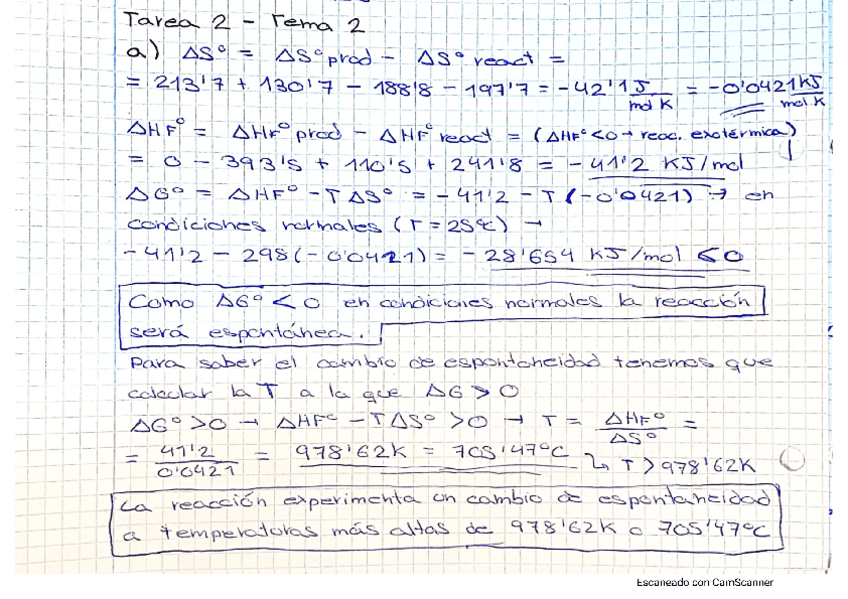 Tarea 2 - Tema 2
a) ΔSº = ΔSº prod - ΔSº react =
= 213'7 + 130'7 - 188'8 - 197'7 = -42'1 J/mol K = -0'0421 KJ/mol K
ΔHFº = ΔHFº prod - ΔHFº react = (ΔHFº<0 → reac. exotérmica)
= 0 - 393'5 + 110'5 + 241'8 = -41'2 KJ/mol
ΔGº = ΔHFº - TΔSº = -41'2 - T(-0'0421) → en
condiciones normales (T = 25ºC) →
-41'2 - 298(-0'0421) = -28'654 KJ/mol < 0
Como ΔGº < 0 en condiciones normales la reacción
será espontánea.
Para saber el cambio de espontaneidad tenemos que
calcular la T a la que ΔG > 0
ΔGº > 0 → ΔHFº - TΔSº > 0 → T = ΔHFº/ΔSº =
= 41'2/0'0421 = 978'62K = 705'47ºC ↳ T > 978'62K
La reacción experimenta un cambio de espontaneidad
a temperaturas más altas de 978'62K o 705'47ºC
Escaneado con CamScanner